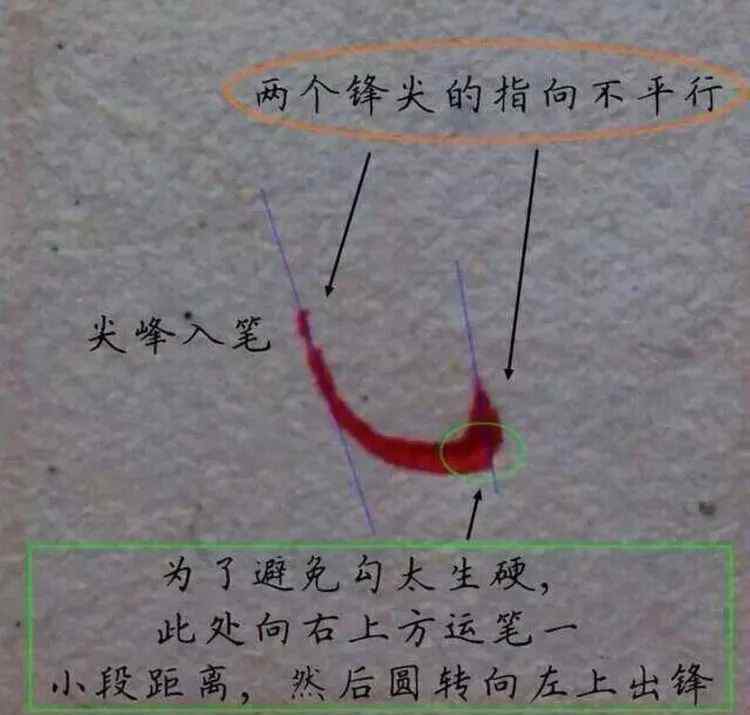 两个锋尖的指向不平行
尖峰入笔
为了避免勾太生硬，
此处向右上方运笔一
小段距离，然后圆转向左上出锋